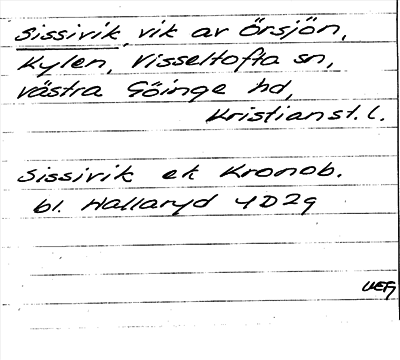 Sissivik, vik av Örsjön,
Kylen, Visseltofta sn,
Västra Göinge hd,
Kristianst. l.
Sissivik ek Kronob.
bl. Hallaryd 4D2g